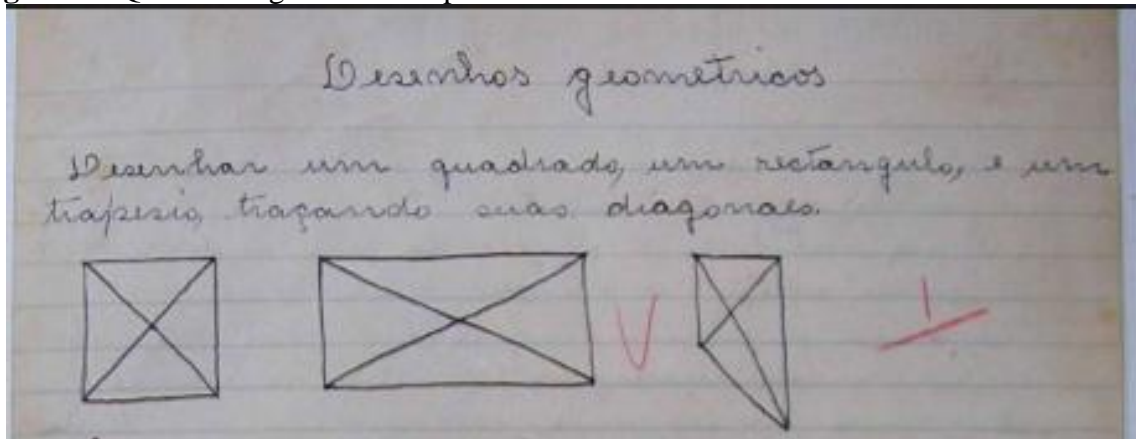 Desenhos geometricos
Desenhar um quadrado, um rectangulo, e um
trapesio, traçando suas diagonaes.
V